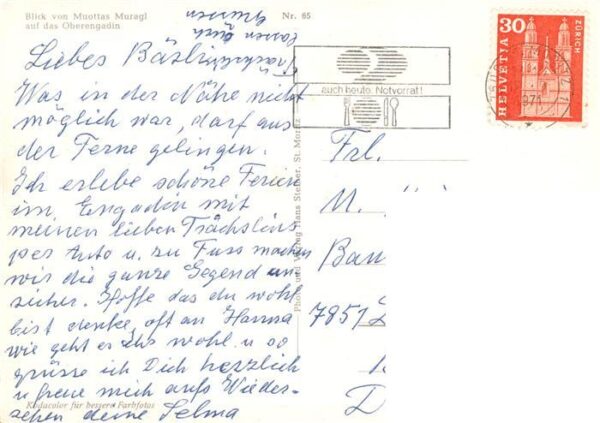 Blick von Muottas Muragl
auf das Oberengadin
Nr. 65
lassen Euch
grüssen
Liebes Bäsli
Was in der Nähe nicht
möglich war, darf aus
der Ferne gelingen.
Ich erlebe schöne Ferien
im Engadin mit
meinen lieben
per Auto u. zu Fuss machen
wir die ganze Gegend un
sicher. Hoffe das du wohl
bist denke oft an Hanna
wie geht es Ihr wohl u so
grüsse ich Dich herzlich
u freue mich aufs Wieder-
sehen deine Selma
Kodacolor für bessere Farbfotos
Photo und Verlag Hans Steiner, St. Moritz
auch heute: Notvorrat!
HELVETIA 30
ZÜRICH
1971
Frl.
M.
Ban
7851